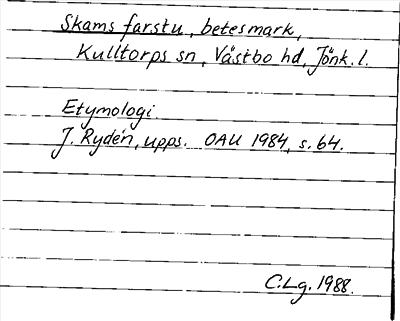 Skams farstu, betesmark,
Kulltorps sn, Västbo hd, Jönk. l.
Etymologi.
J. Rydén, upps. OAU 1984, s. 64.
C.Lg. 1988.